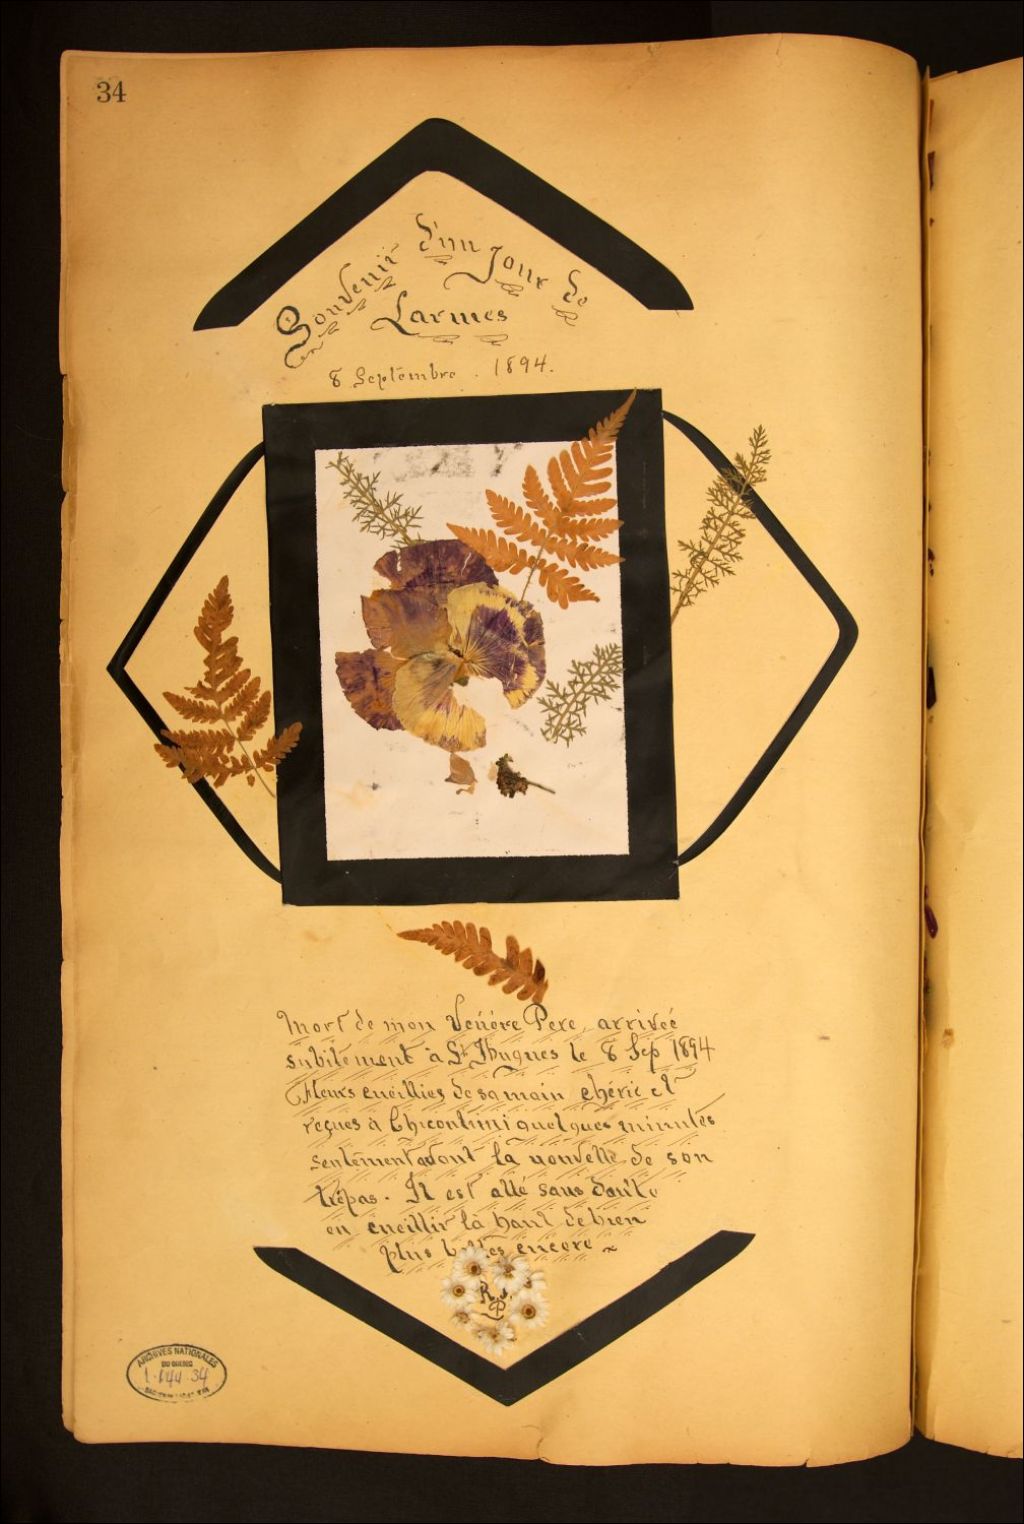 34
Souvenir d'un Jour de
Larmes
8 Septembre . 1894.
Mort de mon Vénéré Pere, arrivée
subitement à St Hugues le 8 Sep 1894
Fleurs cueillies de sa main chérie et
reçues à Chicoutimi quelques minutes
seulement avant la nouvelle de son
trépas. Il est allé sans doute
en cueillir là haut de bien
plus belles encore ~
R. J.
P
ARCHIVES NATIONALES
DU QUEBEC
34